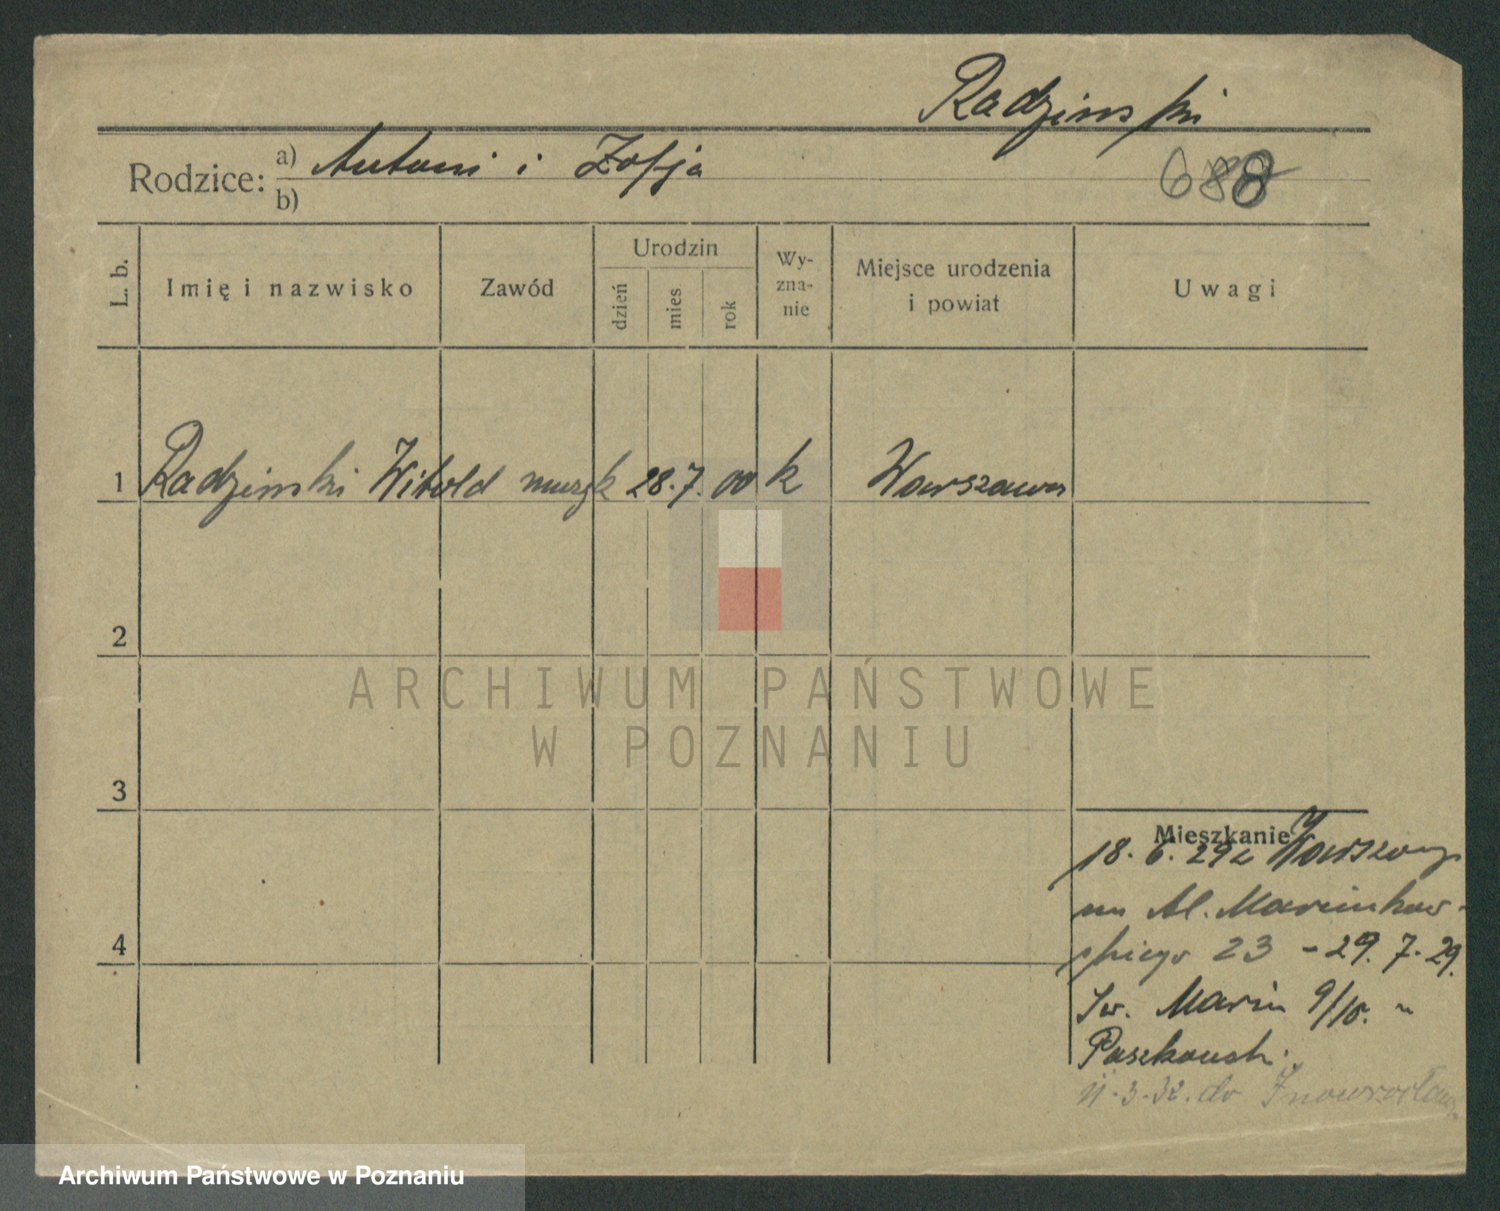 Radzinski
Rodzice: a) Antoni i Zofja
b)
688
L. b.
Imię i nazwisko
Zawód
Urodzin
dzień
mies
rok
Wy-
zna-
nie
Miejsce urodzenia
i powiat
Uwagi
1 Radzinski Witold muzyk 28. 7. 00 k Warszawa
2
ARCHIWUM PAŃSTWOWE
W POZNANIU
3
Mieszkanie
18. 6. 29 z Warszawy
na Al. Marcinkow-
skiego 23 - 29. 7. 29.
Św. Marcin 9/10. u
4
Paszkowski.
11. 3. 32. do Inowrocławia
Archiwum Państwowe w Poznaniu